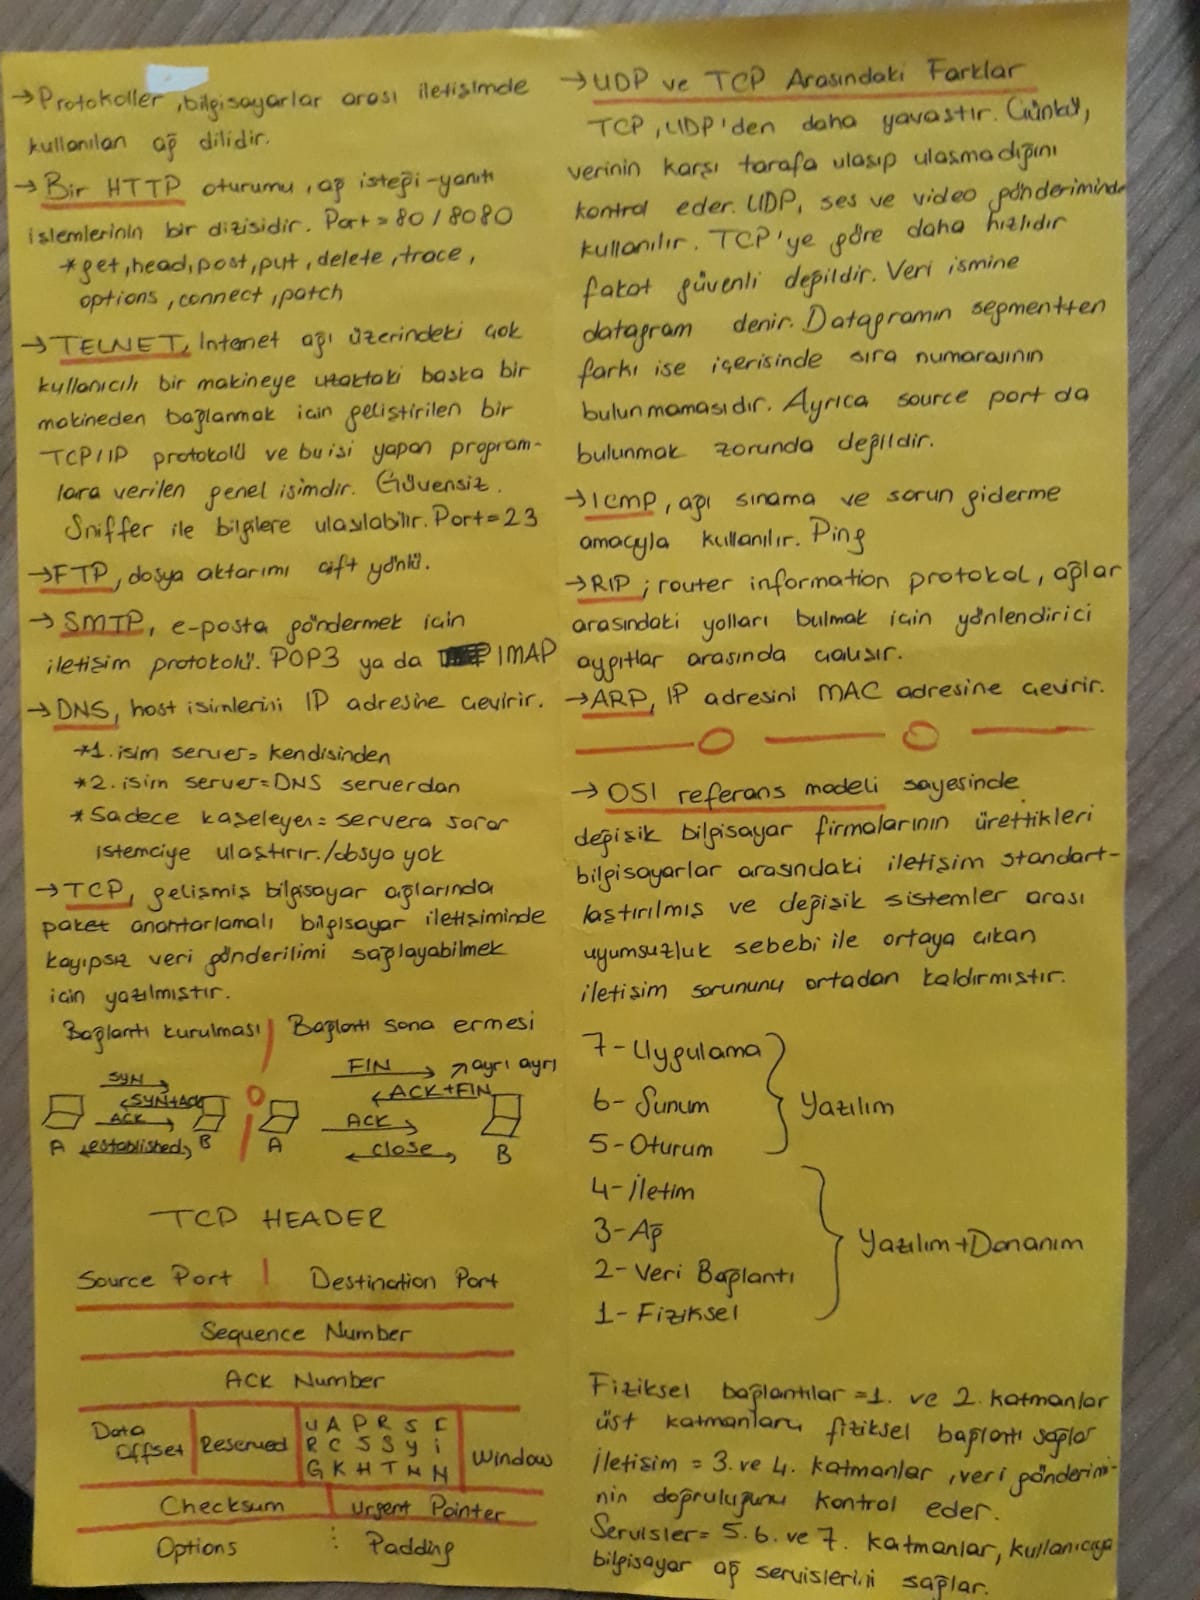 →Protokoller, bilgisayarlar arası iletişimde
kullanılan ağ dilidir.
→Bir HTTP oturumu, ağ isteği-yanıtı
işlemlerinin bir dizisidir. Port=80/8080
*get, head, post, put, delete, trace,
options, connect, patch
→TELNET, Internet ağı üzerindeki çok
kullanıcılı bir makineye uzaktaki başka bir
makineden bağlanmak için geliştirilen bir
TCP/IP protokolü ve bu işi yapan program-
lara verilen genel isimdir. Güvensiz.
Sniffer ile bilgilere ulaşılabilir. Port=23
→FTP, dosya aktarımı çift yönlü.
→SMTP, e-posta göndermek için
iletişim protokolü. POP3 ya da IMAP
→DNS, host isimlerini IP adresine çevirir.
*1. isim server= kendisinden
*2. isim server=DNS serverdan
*Sadece kaşeleyen= servera sorar
istemciye ulaştırır./dosya yok
→TCP, gelişmiş bilgisayar ağlarında
paket anahtarlamalı bilgisayar iletişiminde
kayıpsız veri gönderilimi sağlayabilmek
için yazılmıştır.
Bağlantı kurulması / Bağlantı sona ermesi
SYN
SYN+ACK
ACK
established
A B
FIN ↗ayrı ayrı
ACK+FIN
ACK
close
A B
TCP HEADER
Source Port | Destination Port
Sequence Number
ACK Number
Data Offset | Reserved | URG ACK PSH RST SYN FIN | Window
Checksum | Urgent Pointer
Options ⋮ Padding
→UDP ve TCP Arasındaki Farklar
TCP, UDP'den daha yavaştır. Çünkü,
verinin karşı tarafa ulaşıp ulaşmadığını
kontrol eder. UDP, ses ve video gönderiminde
kullanılır. TCP'ye göre daha hızlıdır
fakat güvenli değildir. Veri ismine
datagram denir. Datagramın segmentten
farkı ise içerisinde sıra numarasının
bulunmamasıdır. Ayrıca source port da
bulunmak zorunda değildir.
→ICMP, ağı sınama ve sorun giderme
amacıyla kullanılır. Ping
→RIP; router information protokol, ağlar
arasındaki yolları bulmak için yönlendirici
aygıtlar arasında çalışır.
→ARP, IP adresini MAC adresine çevirir.
→OSI referans modeli sayesinde
değişik bilgisayar firmalarının ürettikleri
bilgisayarlar arasındaki iletişim standart-
laştırılmış ve değişik sistemler arası
uyumsuzluk sebebi ile ortaya çıkan
iletişim sorununu ortadan kaldırmıştır.
7-Uygulama
6-Sunum
5-Oturum
Yazılım
4-İletim
3-Ağ
2-Veri Bağlantı
1-Fiziksel
Yazılım+Donanım
Fiziksel bağlantılar =1. ve 2. katmanlar
üst katmanlara fiziksel bağlantı sağlar
İletişim = 3. ve 4. katmanlar, veri gönderimi-
nin doğruluğunu kontrol eder.
Servisler= 5. 6. ve 7. katmanlar, kullanıcıya
bilgisayar ağ servislerini sağlar.